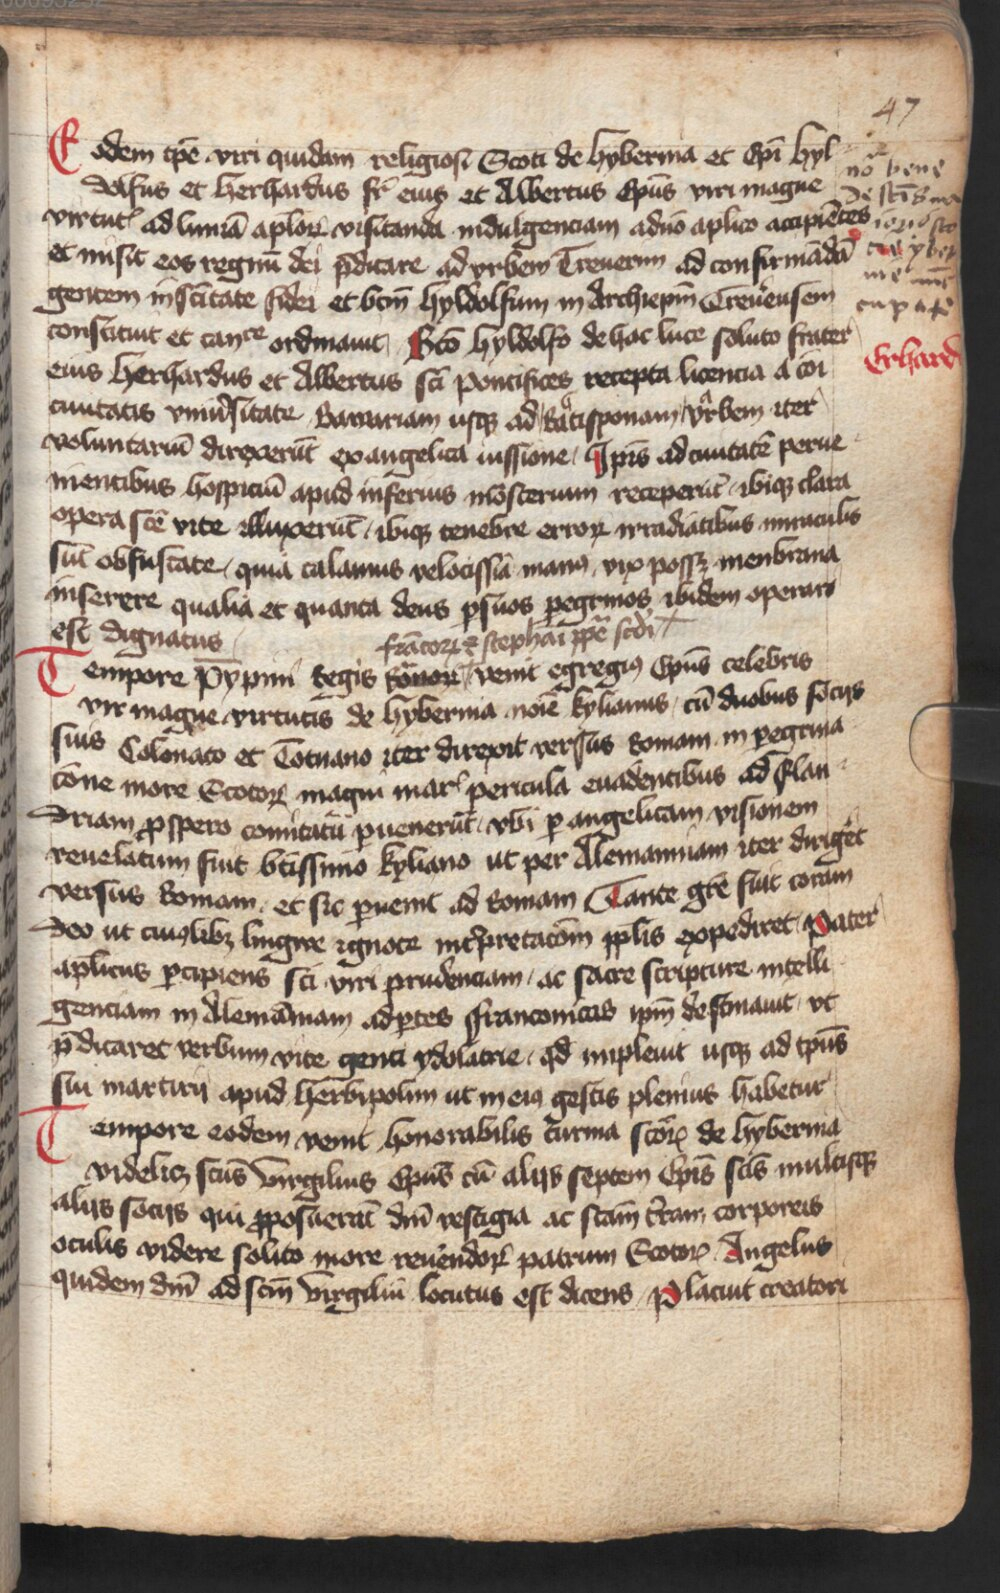 47
Eodem tp̄e viri quidam religiosi Scoti de hybernia et Ep̄i hyl
dolfus et herhardus fr̄ eius et Albertus Ep̄us viri magne
virtut̄ ad limīa ap̄lorꝝ visitanda indulgenciam ap̄lico accipiētes
et misit eos regnū dei p̄dicare ad vrbem Treuerim ad confirmādā
gentem in sc̄itate fidei et bt̄m hyldolfum in Archiep̄m Treuēensem
constituit et ordinauit Bt̄o hyldolfo de hac luce soluto frater
eius herhardus et Albertus sc̄i pontifices recepta licencia a cōi
ciuitatis vniūsitate Bawariam usqꝫ ad Ratisponam vrbem iter
voluntariū direxerūt ewangelica iussione Ip̄is ad ciuitatē perue
nientibus hospiciū apud inferius mōsterium receperūt ibiqꝫ clara
opera sc̄e vite illuxerūt ibiqꝫ tenebre errorꝝ irradiātibus miraculis
sūt obfuscate quia calamus velocissīa manꝰ vix possꝫ menbrana
inserere qualia et quanta deus p̱ suos p̱egrinos ibidem operari
est dignatus
frācorꝝ et stephāi pp̄e sc̄di
Tempore Pȳpini Regis venit egregiꝰ Ep̄us celebris
vir magne virtutis de hybernia noīe kylianus cū duobus socijs
suis Colonato et Totnano iter direxit versus Romam in p̱egrina
cōne more Scotorꝝ magni mar̄ pericula euadentibus ad flan
driam ꝓspero comitatū p̱uenerūt vbi p̱ angelicam visionem
reuelatum fuit bt̄issimo kyliano ut per Alemanniam iter dirigēt
versus Romam et sic p̱uenit ad Romam Tante gr̄e fuit coram
deo ut cuiꝰlibꝫ lingwe ignote int̄pretacōm pp̄lis expediret Pater
ap̄licus p̱cipiens sc̄i viri prudenciam ac sacre scripture intelli
genciam in Alemāniam ad p̱tes franconicas ip̄m destinauit vt
p̄dicaret verbum vite genti ydolatrie qd̄ impleuit usqꝫ ad tp̄us
sui martirij apud herbipolim ut in eiꝰ gestis plenius habetur
Tempore eodem venit honorabilis turma sc̄orꝝ de hybernia
videlicꝫ sc̄us virgilius Ep̄us cū alijs septem Ep̄is sc̄is multisqꝫ
alijs socijs qui ꝓposuerūt dn̄i vestigia ac sc̄am t̄ram corporeis
oculis videre solito more reuēendorꝝ patrum Scotorꝝ Angelus
quidem dn̄i ad sc̄m virgiliū locutus est dicens Placuit creatori
nō bene
Erhard